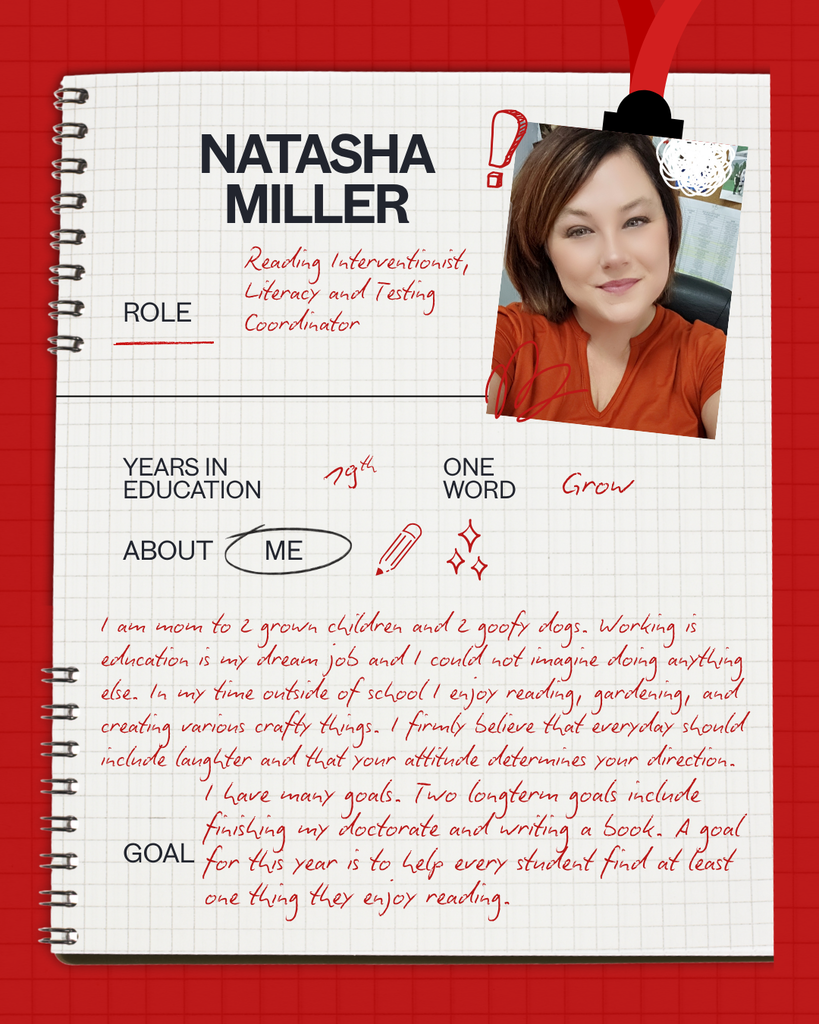 NATASHA
MILLER
ROLE
Reading Interventionist,
Literacy and Testing
Coordinator
YEARS IN
EDUCATION
19th
ONE
WORD
Grow
ABOUT ME
I am mom to 2 grown children and 2 goofy dogs. Working is
education is my dream job and I could not imagine doing anything
else. In my time outside of school I enjoy reading, gardening, and
creating various crafty things. I firmly believe that everyday should
include laughter and that your attitude determines your direction.
GOAL
I have many goals. Two longterm goals include
finishing my doctorate and writing a book. A goal
for this year is to help every student find at least
one thing they enjoy reading.